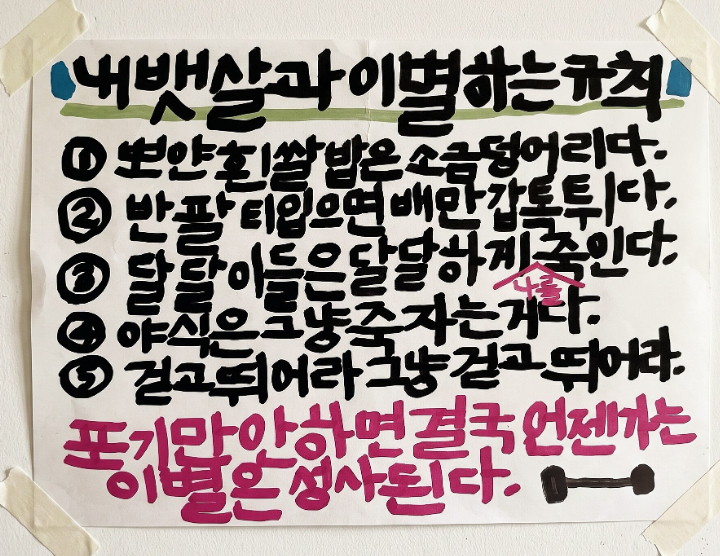 내뱃살과 이별하는 규칙
① 뽀얀 흰쌀밥은 소금덩어리다.
② 반팔 티입으면 배만 갑톡튀다.
③ 달달이들은 달달하게 죽인다.
나를
④ 야식은 그냥 죽자는 거다.
⑤ 걷고 뛰어라 그냥 걷고 뛰어라.
포기만 안하면 결국 언젠가는
이별은 성사된다.